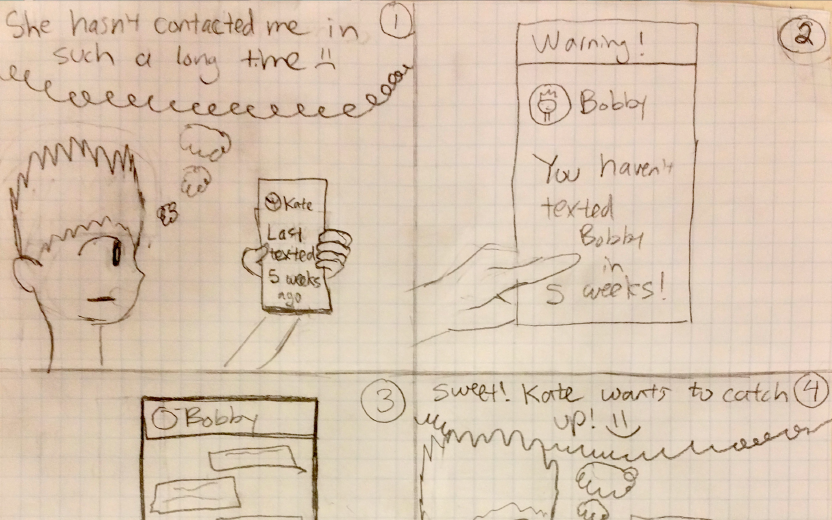 She hasn't contacted me in
such a long time :(
1
Kate
Last
texted
5 weeks
ago
2
Warning!
Bobby
You haven't
texted
Bobby
in
5 weeks!
3
Bobby
4
Sweet! Kate wants to catch
up! :)